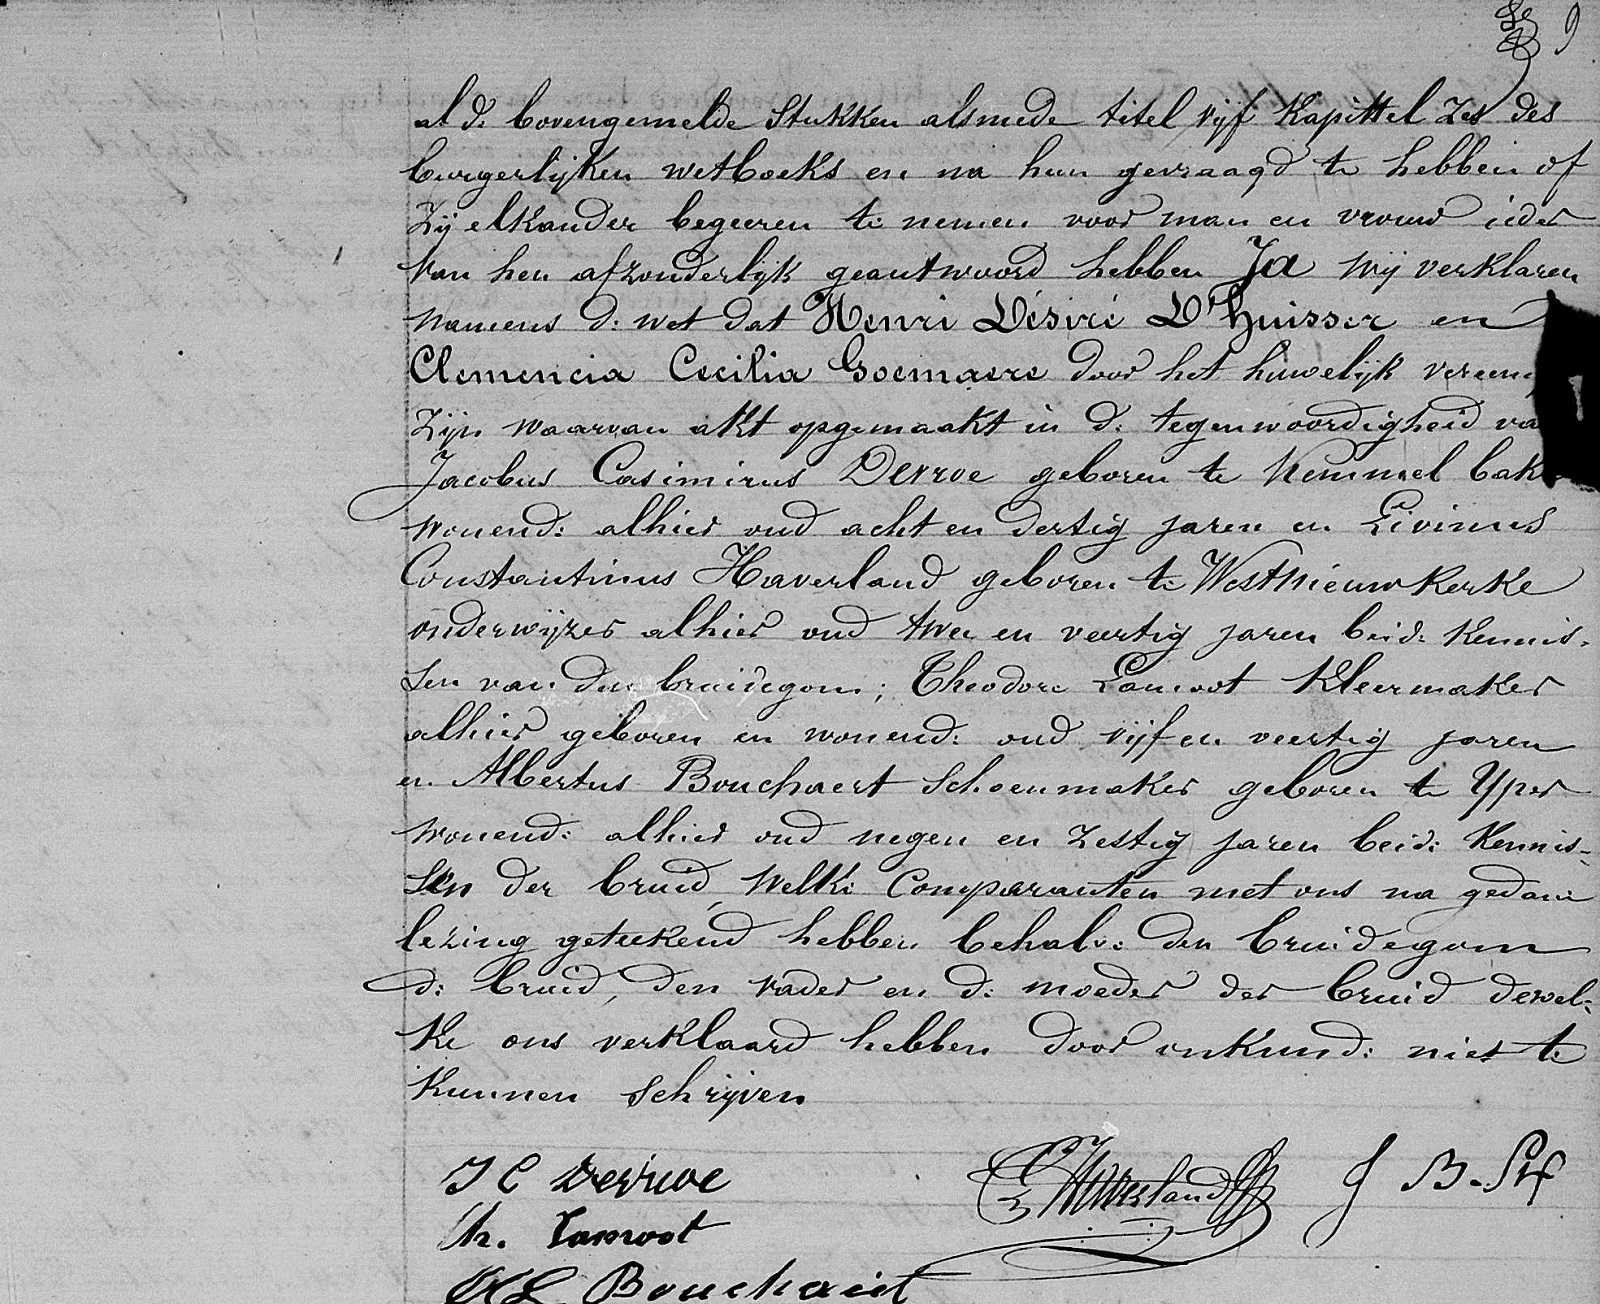 9
al de bovengemelde stukken alsmede titel vijf Kapittel zes des
burgerlijken wetboeks en na hun gevraagd te hebben of
zij elkander begeeren te nemen voor man en vrouw ieder
van hen afzonderlijk geantwoord hebben Ja wij verklaren
namens de wet dat Henri Désiré D'huisser en
Clemencia Cecilia Goemaere door het huwelijk vereen
zijn waarvan akt opgemaakt in de tegenwoordigheid va
Jacobus Casimirus Devroe geboren te Kemmel bak
wonende alhier oud acht en dertig jaren en Livinus
Constantinus Haverland geboren te Westnieuwkerke
onderwijzer alhier oud twee en veertig jaren beide kennis-
sen van den bruidegom; Theodore Lamoot Kleermaker
alhier geboren en wonende oud vijf en veertig jaren
en Albertus Bouchaert schoenmaker geboren te Yper
wonende alhier oud negen en zestig jaren beide kennis-
sen der bruid, welke comparanten met ons na gedane
lezing geteekend hebben behalve den bruidegom
de bruid, den vader en de moeder der bruid dewel-
ke ons verklaard hebben door onkunde niet te
kunnen schrijven
J C Devroe
Haverland
J B.
Th. Lamoot
Bouchaert